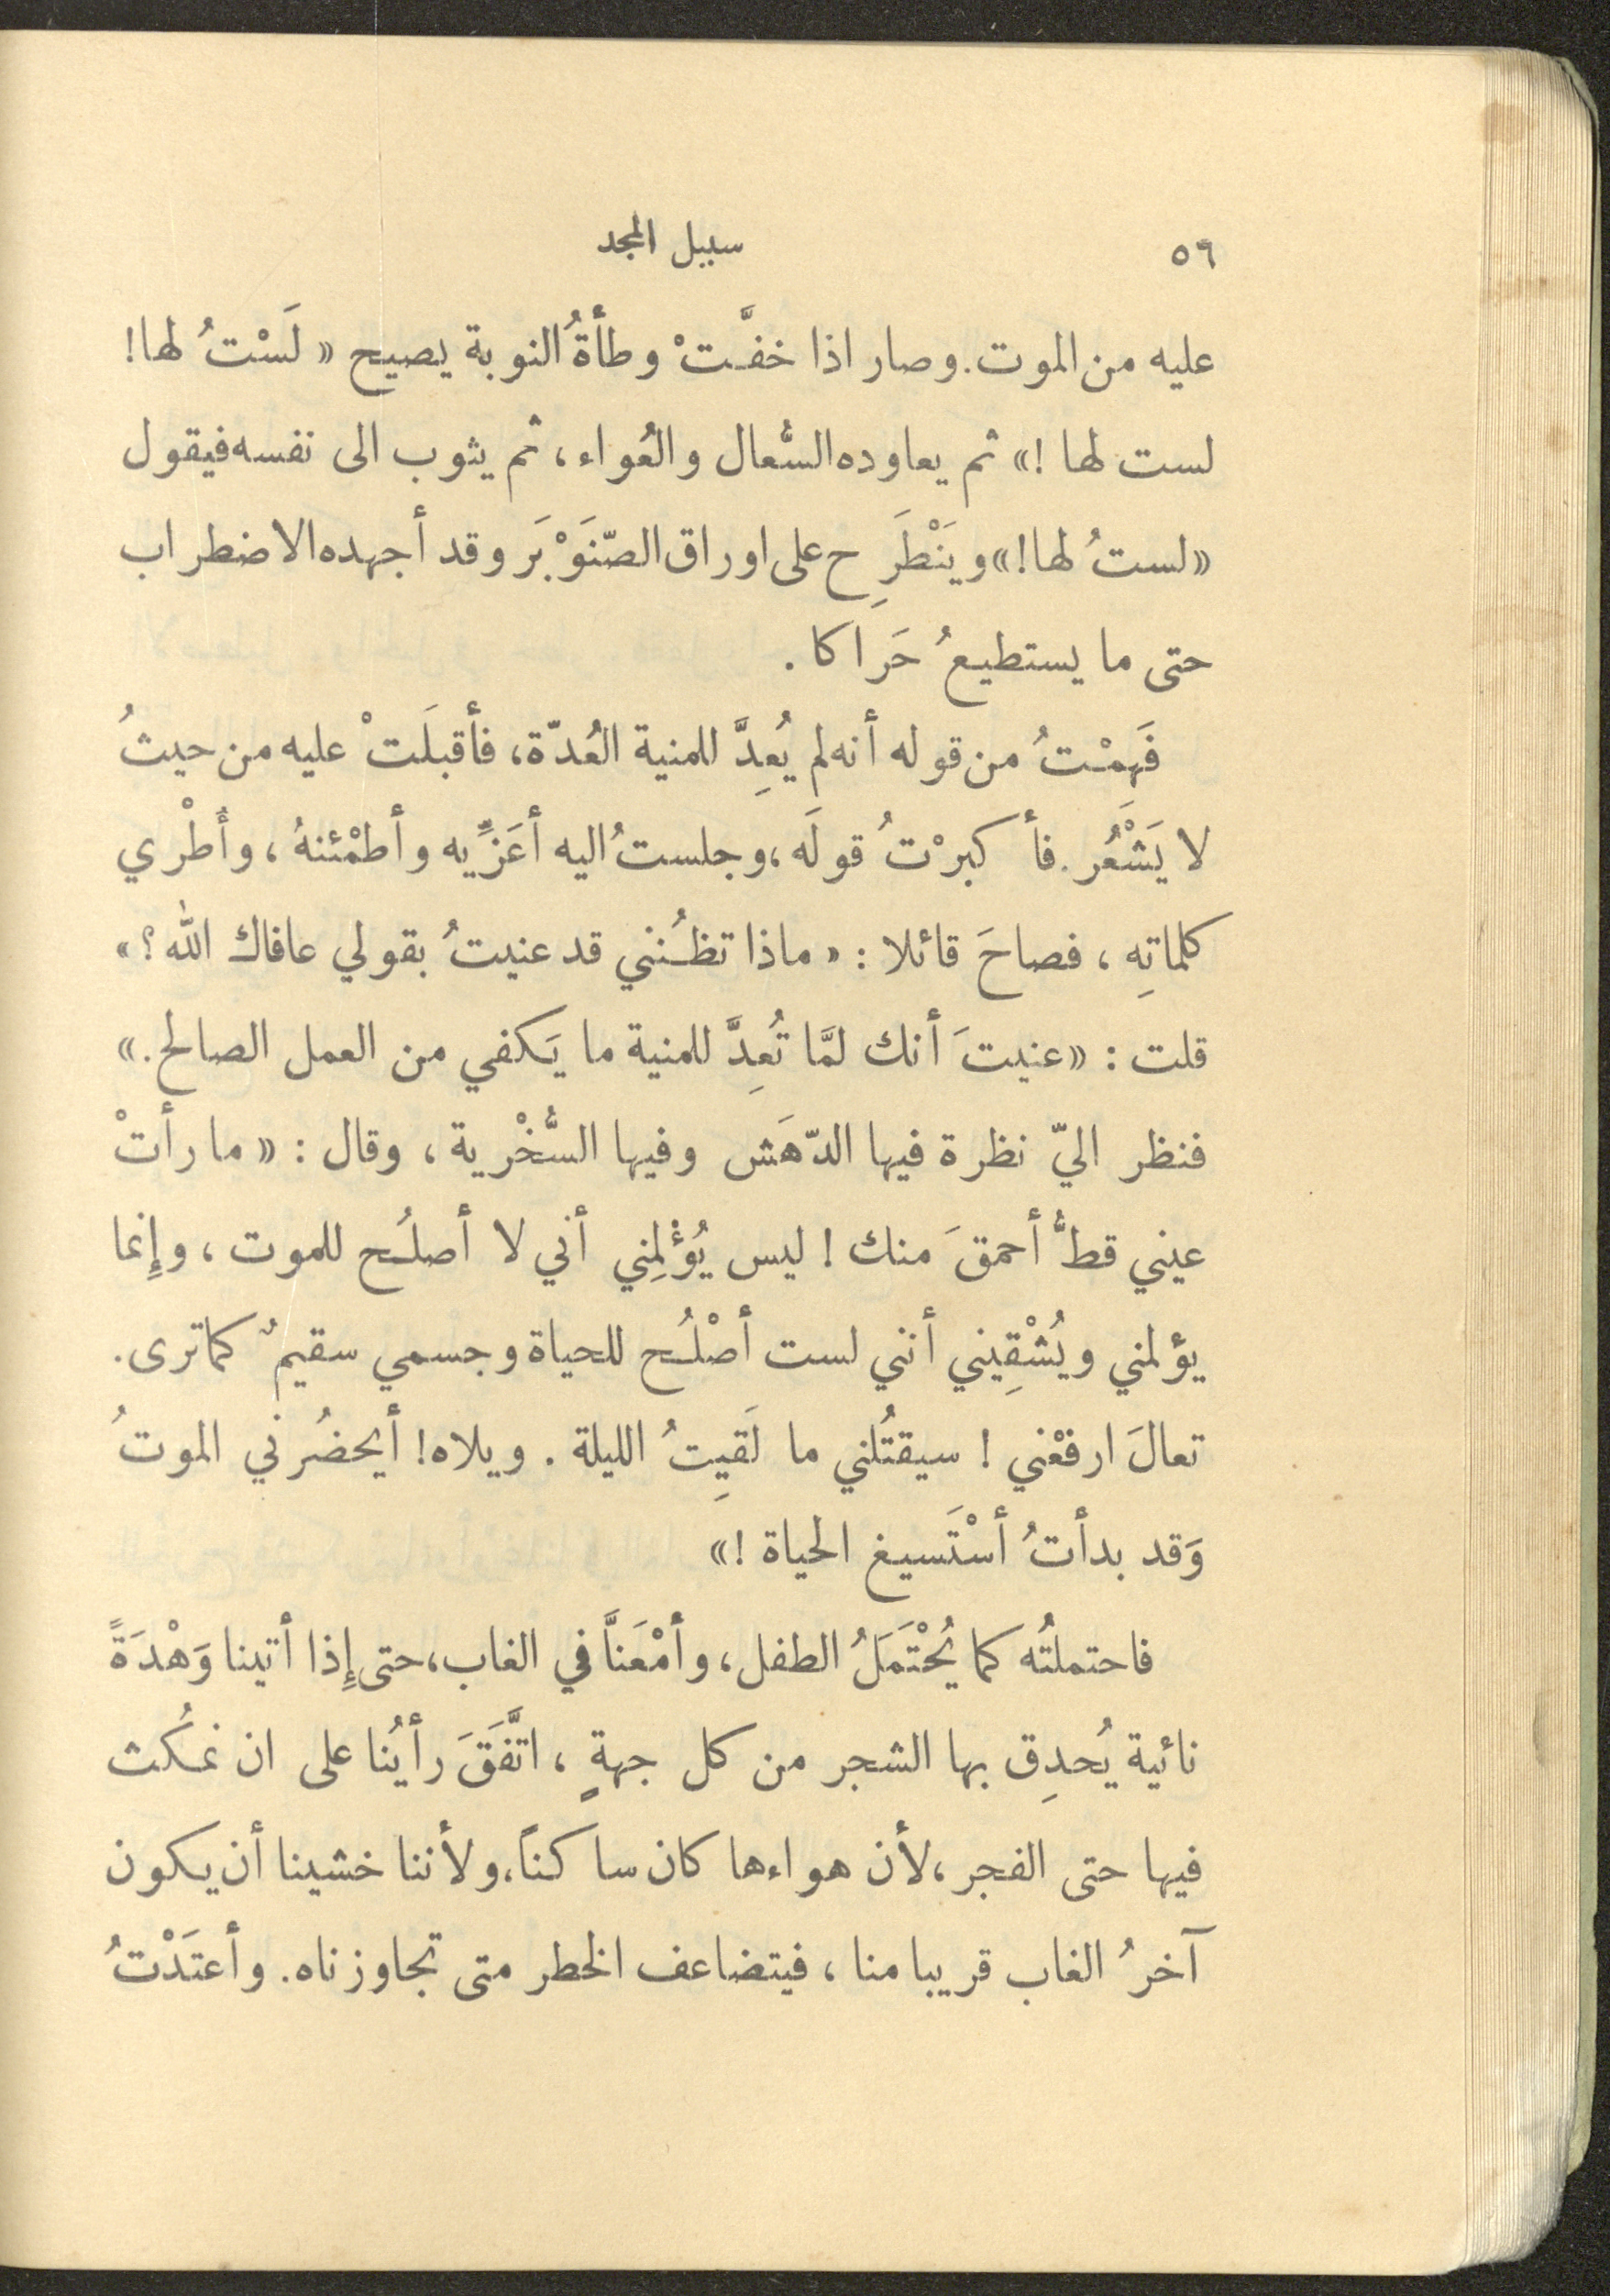 ٥٩ سبيل المجد
عليه من الموت. وصار اذا خفَّتْ وطأةُ النوبة يصيح «لَسْتُ لها!
لست لها!» ثم يعاوده السُّعال والعُواء، ثم يثوب الى نفسه فيقول
«لستُ لها!» ويَنْطَرِح على اوراق الصّنَوْبَر وقد أجهده الاضطراب
حتى ما يستطيعُ حَرَاكا.
فَهِمْتُ من قوله أنه لم يُعِدَّ للمنية العُدّة، فأقبلَتْ عليه من حيثُ
لا يَشْعُر. فأكبرْتُ قولَه، وجلستُ اليه أعَزِّيه وأطمْئنهُ، وأُطْري
كلماتِه، فصاحَ قائلا: «ماذا تظُنني قد عنيتُ بقولي عافاك الله؟»
قلت: «عنيتَ أنك لمَّا تُعِدَّ للمنية ما يَكفي من العمل الصالح.»
فنظر اليّ نظرة فيها الدّهَش وفيها السُّخْرية، وقال: «ما رأتْ
عيني قطُّ أحمقَ منك! ليس يُؤْلِمني أني لا أصلُح للموت، وإِنما
يؤلمني ويُشْقِيني أنني لست أصْلُح للحياة وجسمي سقيمٌ كما ترى.
تعالَ ارفعْني! سيقتُلني ما لَقيِتُ الليلة. ويلاه! أيحضُرني الموتُ
وَقد بدأتُ أسْتَسيغ الحياة!»
فاحتملتُه كما يُحْتَمَلُ الطفل، وأمْعَنَّا في الغاب، حتى إِذا أتينا وَهْدَةً
نائية يُحدِق بها الشجر من كل جهةٍ، اتَّفَقَ رأيُنا على ان نمكُث
فيها حتى الفجر، لأن هواءها كان ساكناً، ولأننا خشينا أن يكون
آخرُ الغاب قريبا منا، فيتضاعف الخطر متى تجاوزناه. وأعتَدْتُ